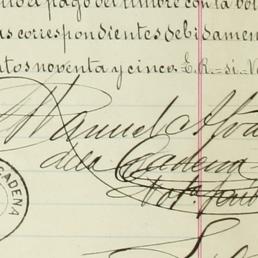 el pago del timbre con la bol
as correspondientes debidamen
tos noventa y cinco. E. R. = si = V
Manuel Alva
de la Cadena
Not. Pub
CADENA